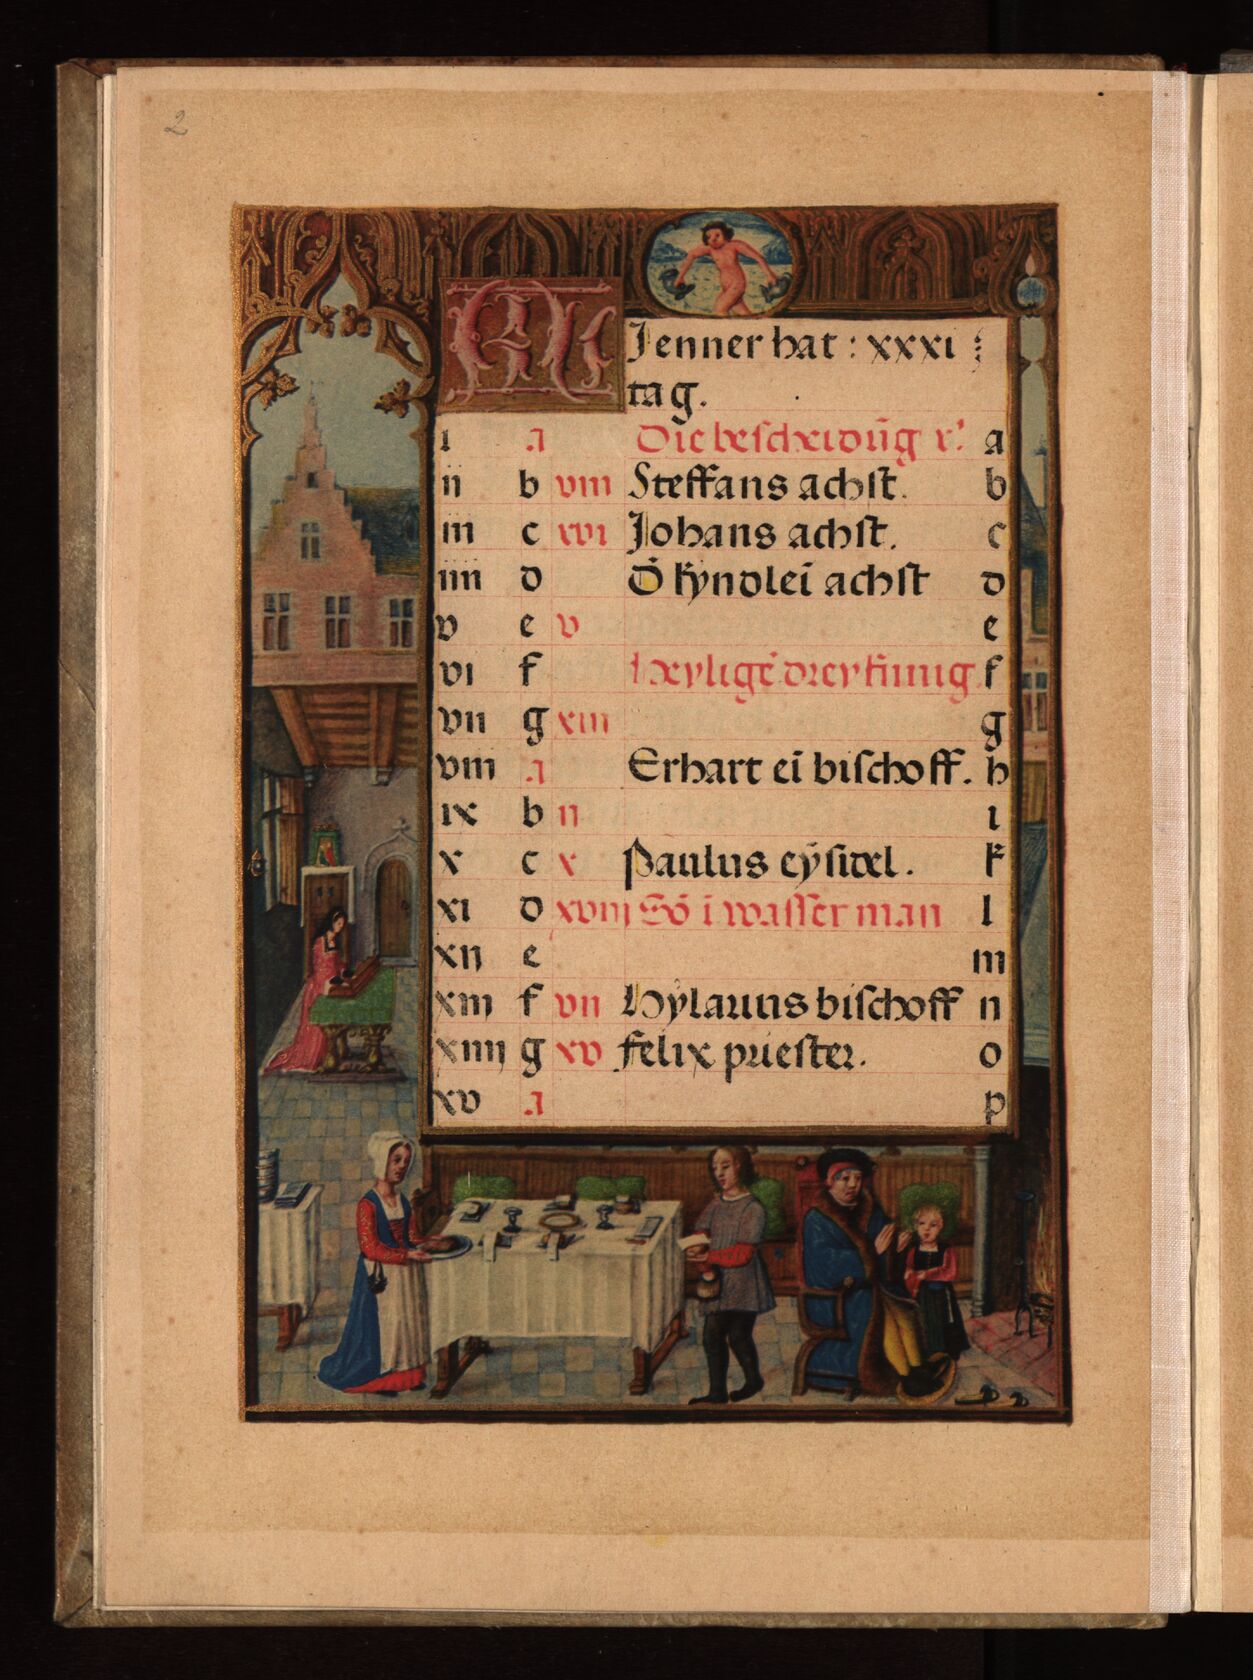 2
KL Jenner hat : xxxi :
tag.
i a Die bescheidūg x' a
ii b viii Steffans achst. b
iii c xvi Johans achst. c
iiii d D̄ kyndlēi achst d
v e v e
vi f Heylīgē drey künig f
vii g xiii g
viii a Erhart eī bischoff. h
ix b ii i
x c x Paulus eÿsidel. k
xi d xviii Sō ī wasser man l
xii e m
xiii f vii Hÿlarius bischoff n
xiiii g xv felix priester. o
xv a p